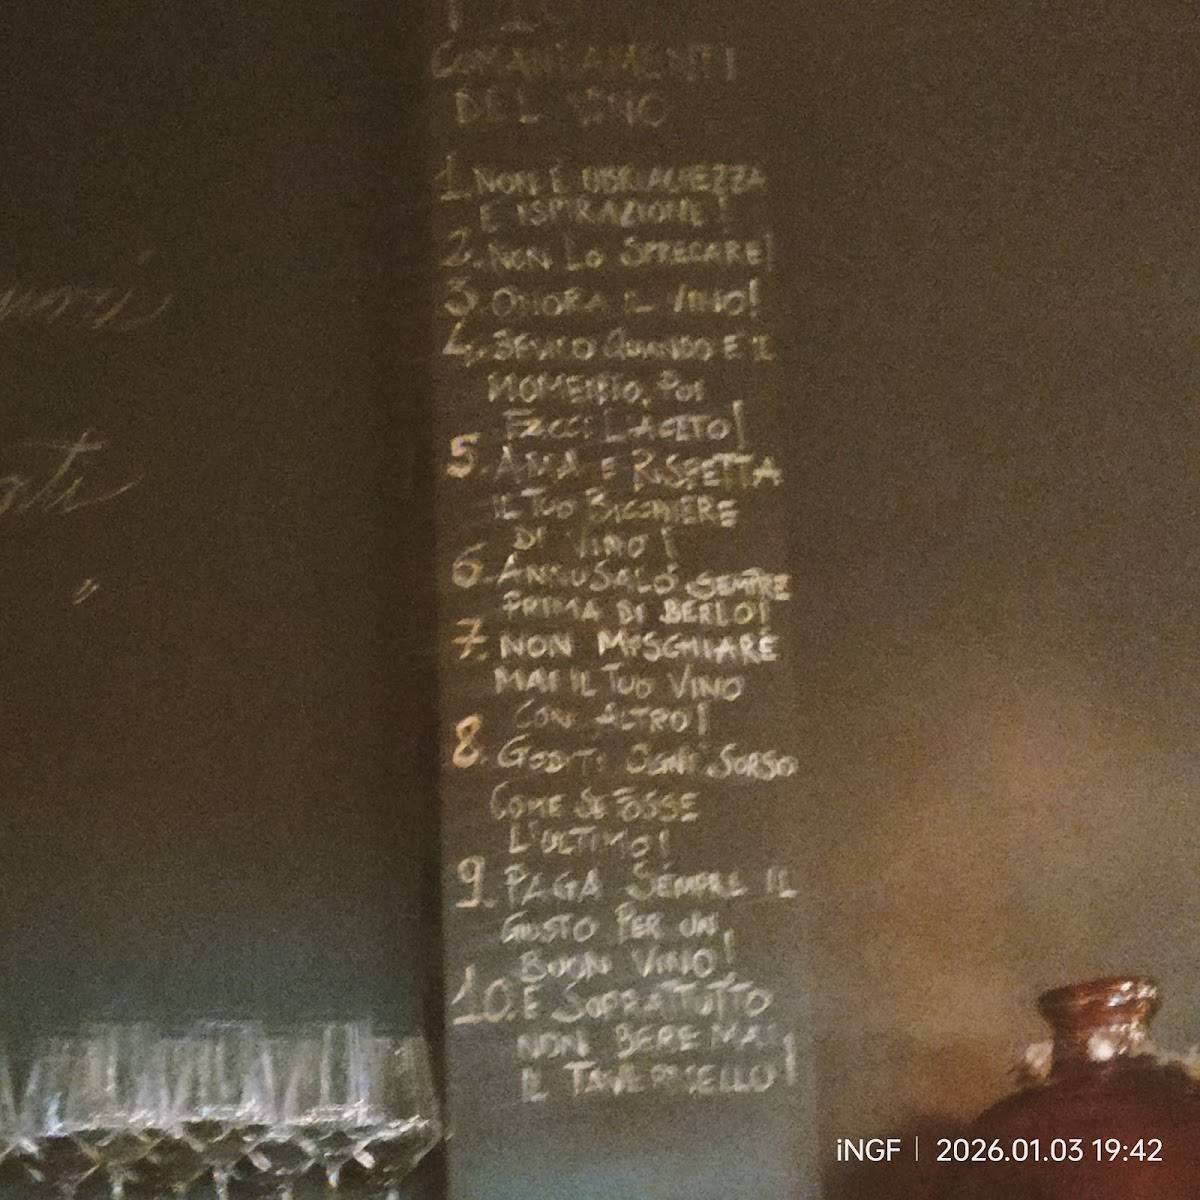 I 10
COMANDAMENTI
DEL VINO
1. NON È UBRIACHEZZA
È ISPIRAZIONE!
2. NON LO SPRECARE!
3. ONORA IL VINO!
4. BEVILO QUANDO È IL
MOMENTO, POI
FACCI L'ACETO!
5. AMA E RISPETTA
IL TUO BICCHIERE
DI VINO!
6. ANNUSALO SEMPRE
PRIMA DI BERLO!
7. NON MISCHIARE
MAI IL TUO VINO
CON ALTRO!
8. GODITI OGNI SORSO
COME SE FOSSE
L'ULTIMO!
9. PAGA SEMPRE IL
GIUSTO PER UN
BUON VINO!
10. E SOPRATTUTTO
NON BERE MAI
IL TAVERNELLO!
iNGF | 2026.01.03 19:42